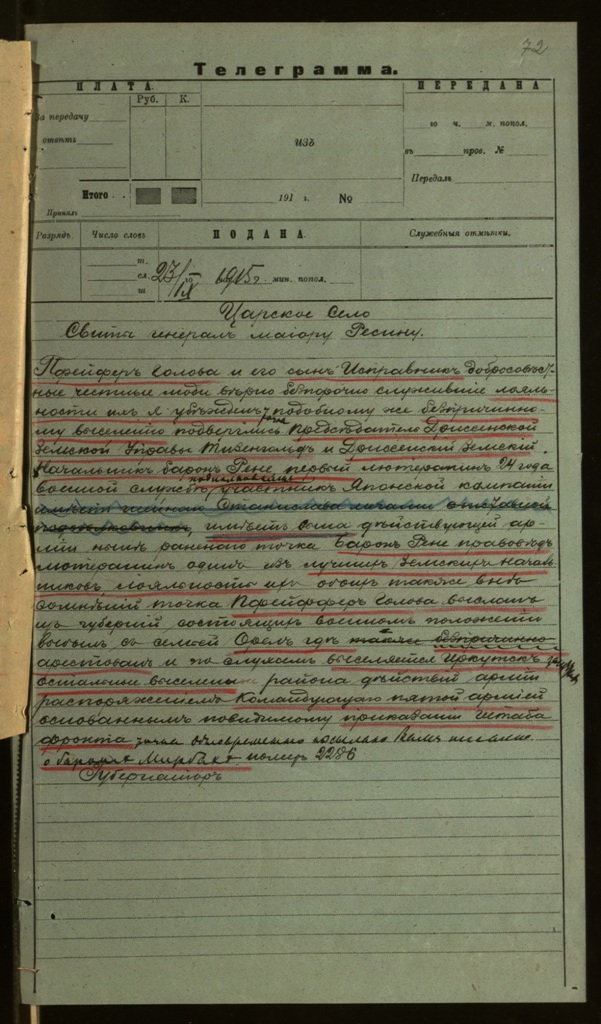 72
Телеграмма.
ПЛАТА.
Руб. К.
За передачу
отвѣтъ
Итого
Принялъ
изъ
191 г. №
ПЕРЕДАНА
го ч. м. попол.
въ пров. №
Передалъ
Разрядъ. Число словъ
ПОДАНА.
Служебныя отмѣтки.
23/IX 1915 г. мин. попол.
Царское Село
Свиты генералъ маіору Ресину.
Пфейферъ Голова и его сынъ Исправникъ добросовѣст-
ные честные люди вѣрно безпорочно служившіе лояль-
ности ихъ я убѣжденъ тчка подобному же безпричинно-
му выселенію подверглись Предсѣдатель Дриссенской
Земской Управы Тизенгольдъ и Дриссенскій Земскій
Начальникъ баронъ Рене первый лютеранинъ 24 года
военной службы подполковникъ участникъ Японской кампаніи
имѣетъ Станислава отставкой
подполковникъ, имѣетъ сына дѣйствующей ар-
міи нынѣ раненаго точка Баронъ Рене правовѣдъ
лютеранинъ одинъ изъ лучшихъ Земскихъ Началь
никовъ лояльность ихъ обоихъ также внѣ
сомнѣній точка Пфейфферъ Голова высланъ
губерній состоящихъ военномъ положеніи
выбылъ съ семьей Орелъ гдѣ также безпричинно
арестованъ и по слухамъ выселяется Иркутскъ тчка
остальные выселены района дѣйствій арміи
распоряженіемъ Командующаго пятой арміей
основаннымъ повидимому приказаніи Штаба
фронта точка одновременно посылаю Вамъ письмо
о баронѣ Мирбахѣ. номеръ 2286
Губернаторъ